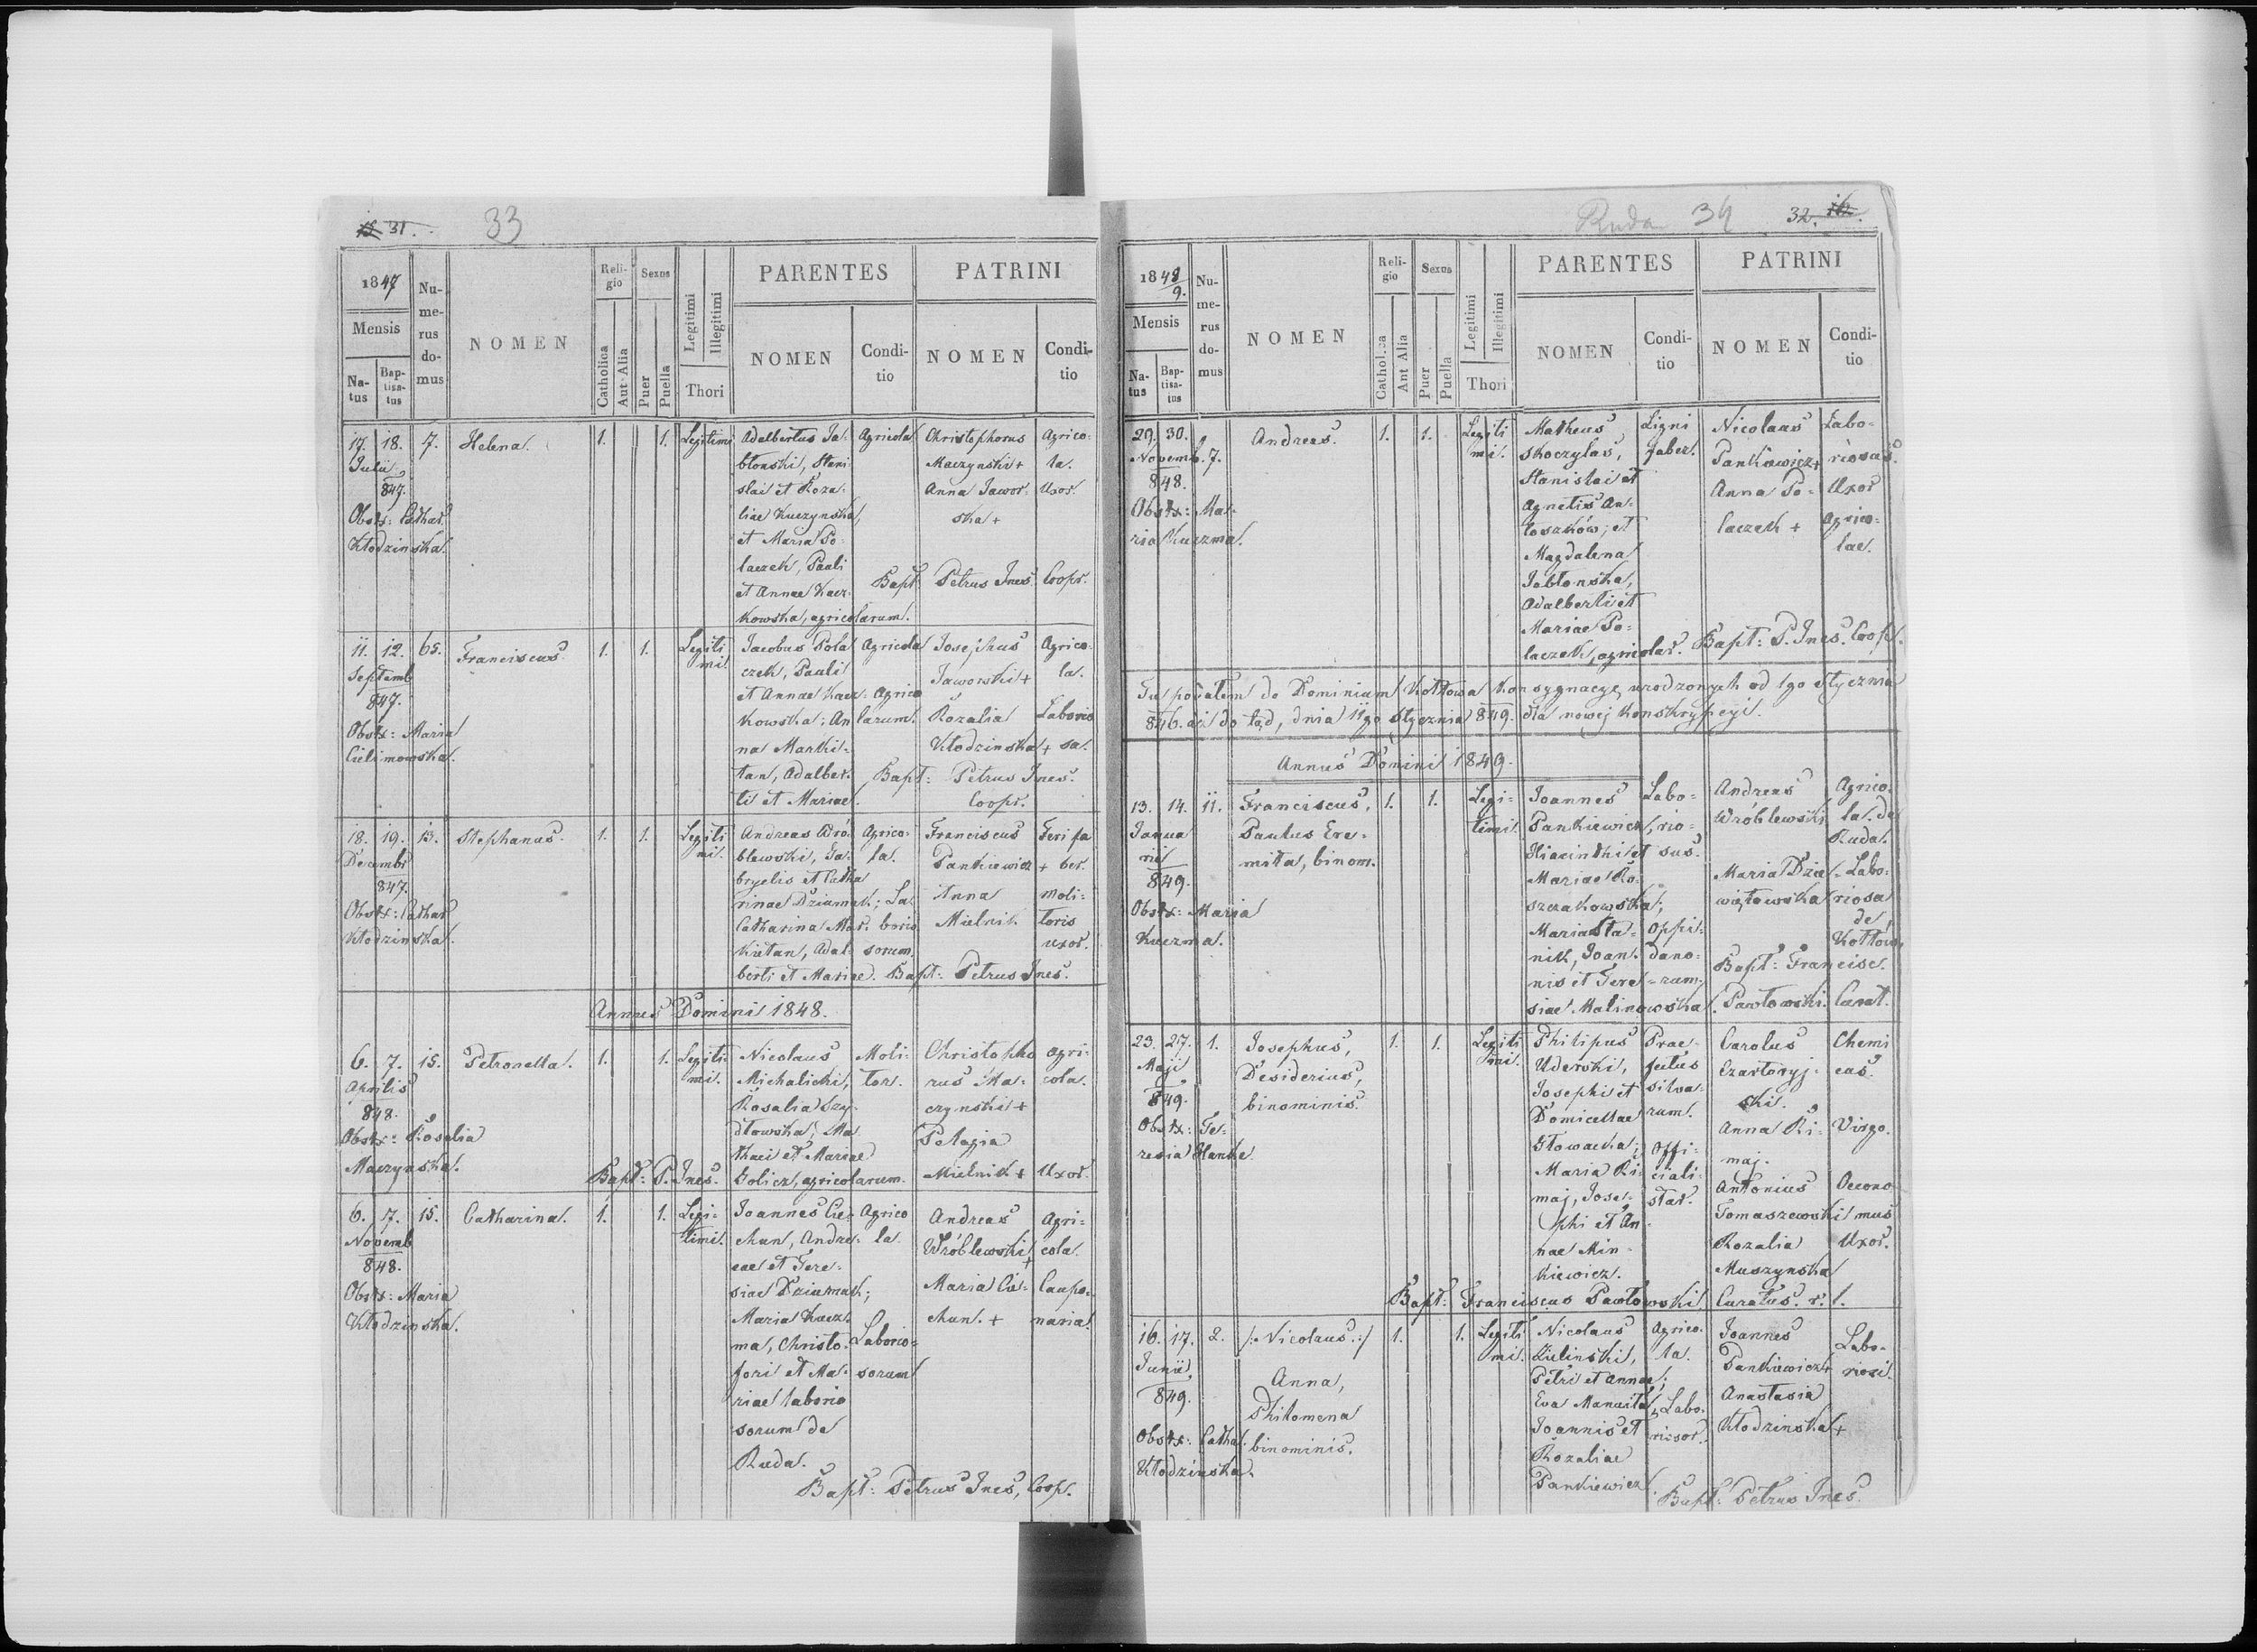 31.
33
1847
Mensis
Na-
tus
Bap-
tisa-
tus
Nu-
me-
rus
do-
mus
NOMEN
Reli-
gio
Catholica
Aut Alia
Sexus
Puer
Puella
Legitimi
Illegitimi
Thori
PARENTES
NOMEN
Condi-
tio
PATRINI
NOMEN
Condi-
tio
17. 18. 7.
Julii
847.
Obstx: Cathar.
Kłodzinska.
Helena.
1. 1.
Legitimi
Adalbertus Ja-
błonski, Stani
slai et Roza-
liae Kuczynska,
et Maria Po-
laczek, Pauli
et Annae Kacz-
kowska, agricolarum.
Agricola
Christophorus
Maczynski +
Anna Jawor-
ska +
Agrico-
la.
Uxor.
Bapt: Petrus Ines. Coopr.
11. 12. 65.
Septemb
847.
Obstx: Maria
Cielimowska.
Franciscus.
1. 1.
Legiti
mi.
Jacobus Pola
czek, Pauli
et Annae Kacz-
kowska; An
na Marki-
tan, Adalber-
ti et Mariae.
Agricola
Agrico
larum.
Josephus
Jaworski +
Rozalia
Kłodzinska +
Agrico-
la.
Laborio
sa.
Bapt: Petrus Ines.
Coopr.
18. 19. 13.
Decembr
847.
Obstx: Cathar
Kłodzinska.
Stephanus.
1. 1.
Legiti
mi.
Andreas Wró-
blewski, Ga-
bryelis et Catha
rinae Dziumak;
Catharina Mar-
kietan, Adal-
berti et Mariae.
Agrico-
la.
La
borio
sorum.
Franciscus
Pankiewicz +
Anna
Mielnik
Feri fa
ber.
Moli-
toris
uxor.
Bapt: Petrus Ines.
Annus Domini 1848.
6. 7. 15.
Aprilis
848.
Obstx: Rosalia
Maczynska.
Petronella.
1. 1.
Legiti
mi.
Nicolaus
Michalicki,
Rosalia Szy-
dłowska, Ma
thaei et Mariae
Golicz, agricolarum.
Moli-
tor.
Christopho
rus Ma-
czynski +
Pelagia
Mielnik +
Agri-
cola.
Uxor.
Bapt: P. Ines.
6. 7. 15.
Novemb
848.
Obstx: Maria
Kłodzinska.
Catharina.
1. 1.
Legi-
timi.
Joannes Cie-
chan, Andre-
eae et Tere-
siae Dziumak;
Maria Kucz-
ma, Christo-
fori et Ma-
riae laborio
sorum de
Ruda.
Agrico
la.
Laborio-
sorum
Andreas
Wróblewski +
Maria Cie-
chan. +
Agri-
cola.
Caupo-
naria.
Bapt: Petrus Ines, Coop.
Ruda 34 32.
1848
9.
Mensis
Na-
tus
Bap-
tisa-
tus
Nu-
me-
rus
do-
mus
NOMEN
Reli-
gio
Catholica
Aut Alia
Sexus
Puer
Puella
Legitimi
Illegitimi
Thori
PARENTES
NOMEN
Condi-
tio
PATRINI
NOMEN
Condi-
tio
29. 30. 7.
Novemb.
848.
Obstx: Ma-
ria Kuczma.
Andreas.
1. 1.
Legiti
mi.
Matheus
Skoczylas,
Stanislai et
Agnetis An-
toszków; et
Magdalena
Jabłonska,
Adalberti et
Mariae Po-
laczek, agricolar.
Ligni
faber.
Nicolaus
Pankiewicz +
Anna Po-
laczek +
Labo-
riosus.
Uxor
Agrico-
lae.
Bapt: P. Ines. Coop.
Tu podałem do Dominium Kołtowa Konsygnacyę urodzonych od 1go stycznia
846. aż do tąd, dnia 11go stycznia 849. dla nowej konskrypcyi.
Annus Domini 1849.
13. 14. 11.
Janua
rii
849.
Obstx: Maria
Kuczma.
Franciscus,
Paulus Ere-
mita, binom.
1. 1.
Legi-
timi.
Joannes
Pankiewicz,
Hiacinthi et
Mariae Ro-
szczakowska;
Maria Sta-
nik, Joan-
nis et Tere-
siae Malinowska.
Labo-
rio-
sus.
Oppi-
dano-
rum.
Andreas
Wróblewski
Maria Dzie-
więtowska
Agrico
la de
Ruda.
Labo-
riosa
de
Kołtów.
Bapt: Francisc.
Pawłowski. Curat.
23. 27. 1.
Maji
849.
Obstx: Te-
resia Hanke.
Josephus,
Desiderius,
binominis.
1. 1.
Legiti
mi.
Philipus
Uderski,
Josephi et
Domicellae
Głowacka;
Maria Ri-
maj, Jose-
phi et An-
nae Min-
kiewicz.
Prae-
fectus
silva-
rum.
Offi-
ciali-
star.
Carolus
Czartoryj-
ski.
Anna Ri-
maj.
Antonius
Tomaszewski
Rozalia
Muszynska
Chemi
cus.
Virgo.
Oecono
mus
Uxor.
Bapt: Franciscus Pawłowski Curatus. r. l.
16. 17. 2.
Junii
849.
Obstx: Cathar.
Kłodzinska.
/: Nicolaus :/
Anna,
Philomena
binominis.
1. 1.
Legiti
mi.
Nicolaus
Zielinski,
Petri et Annae;
Eva Manasta,
Joannis et
Rozaliae
Pankiewicz.
Agrico-
la.
Labo-
riosor.
Joannes
Pankiewicz +
Anastasia
Kłodzinska +
Labo-
riosi.
Bapt: Petrus Ines.